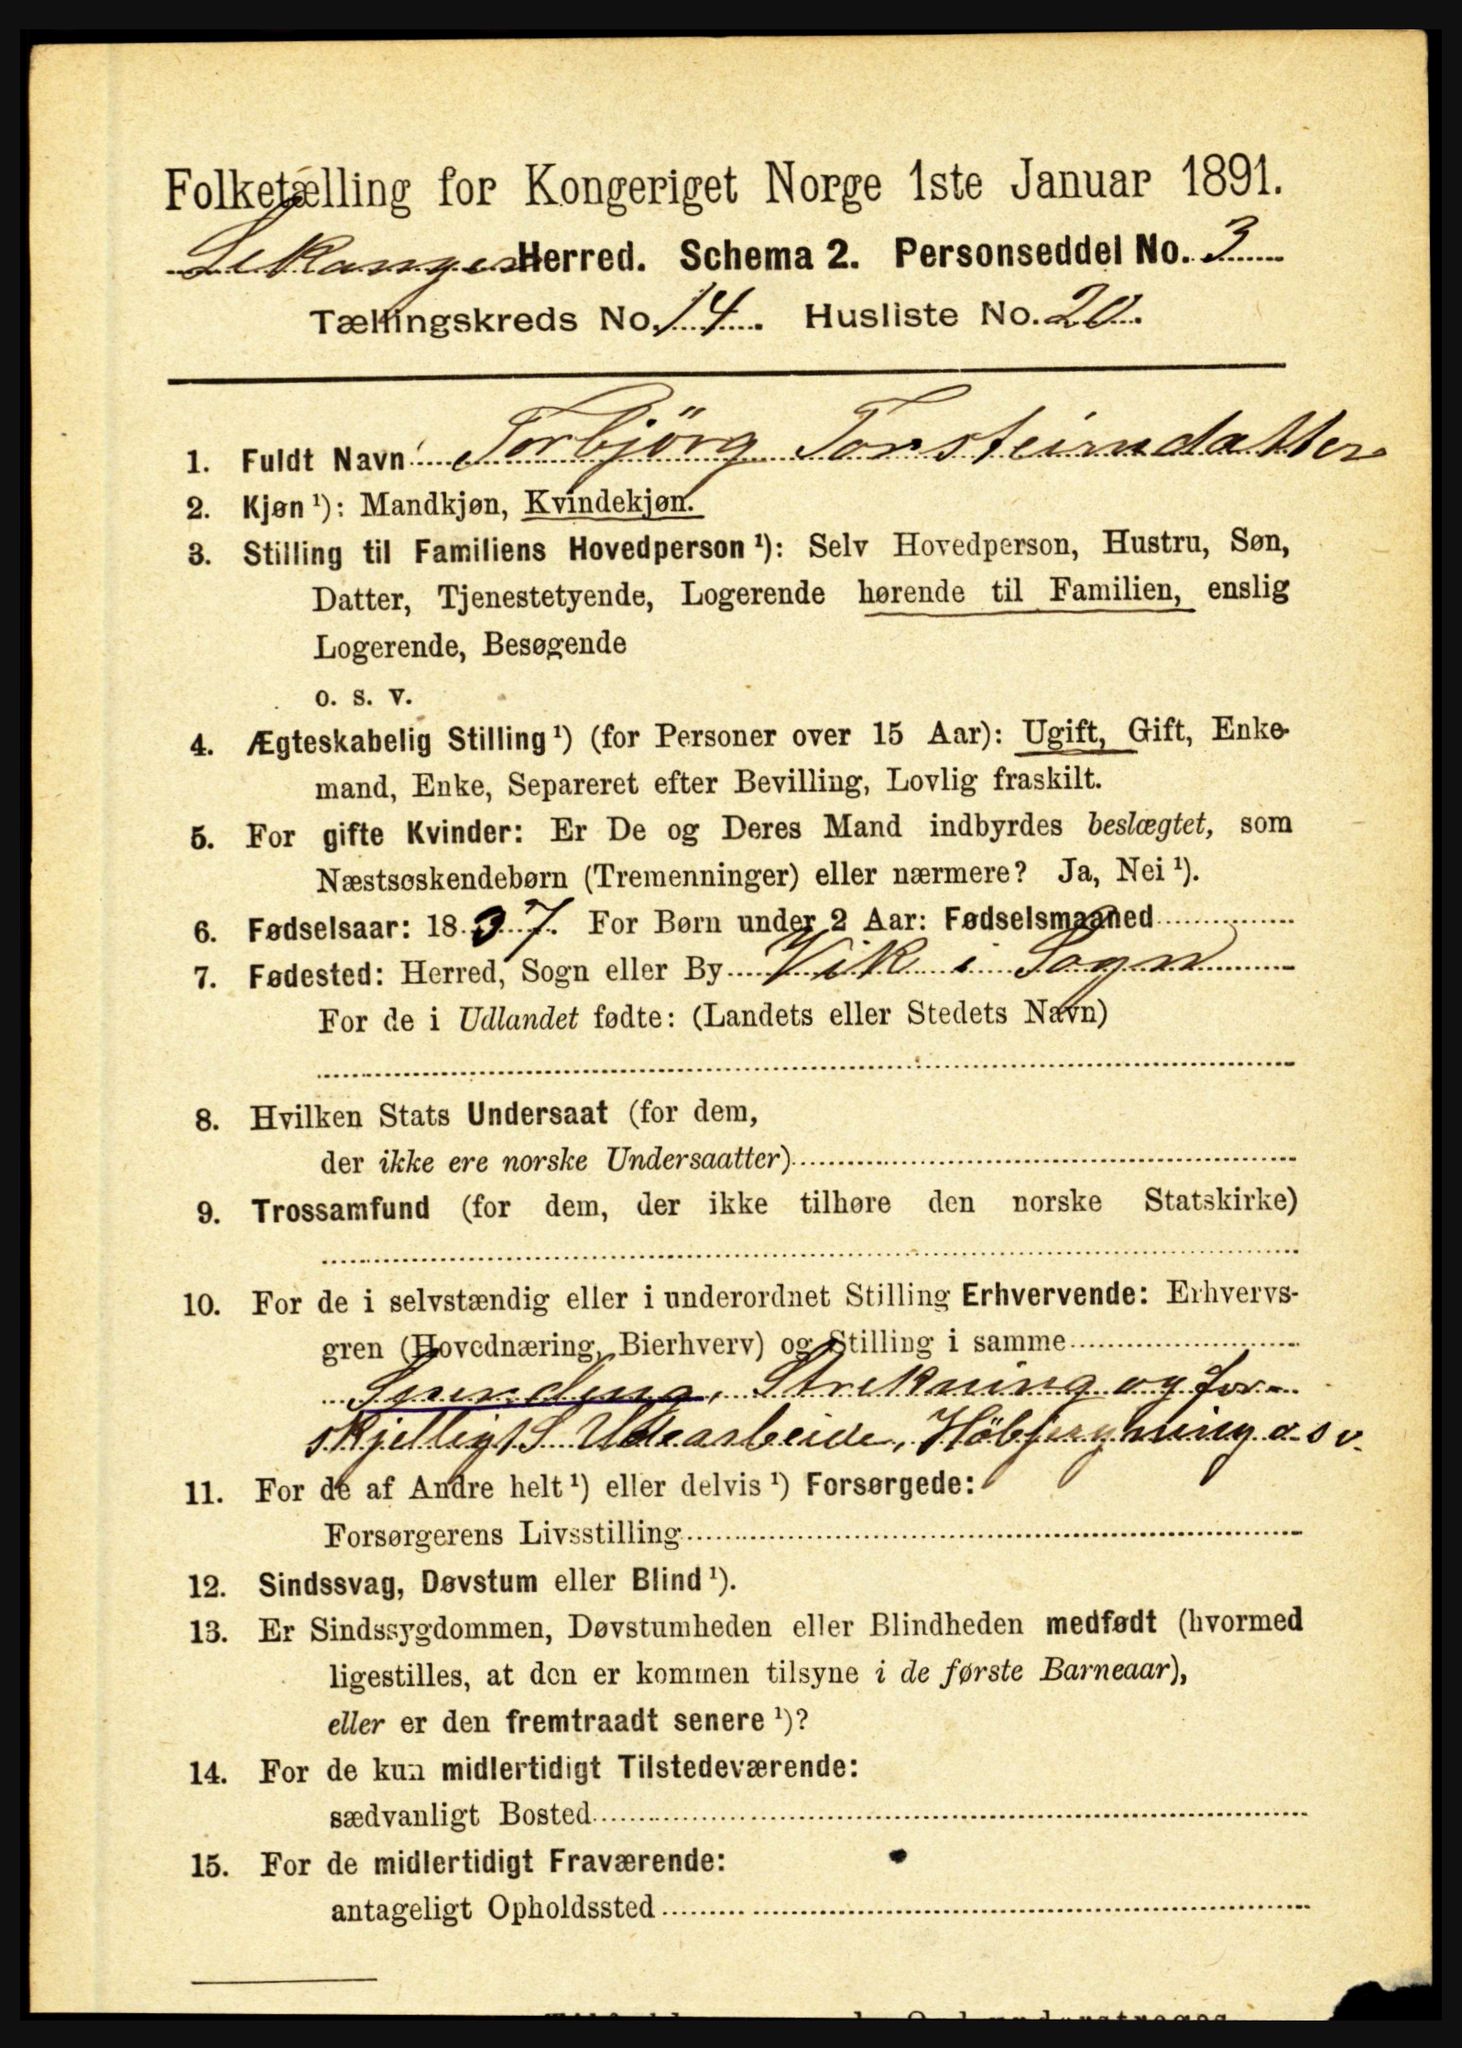 Folketælling for Kongeriget Norge 1ste Januar 1891.
Lekanger Herred. Schema 2. Personseddel No. 3
Tællingskreds No. 14. Husliste No. 20.
1. Fuldt Navn Torbjörg Torsteinsdatter
2. Kjøn¹): Mandkjøn, Kvindekjøn.
3. Stilling til Familiens Hovedperson¹): Selv Hovedperson, Hustru, Søn,
Datter, Tjenestetyende, Logerende hørende til Familien, enslig
Logerende, Besøgende
o. s. v.
4. Ægteskabelig Stilling¹) (for Personer over 15 Aar): Ugift, Gift, Enke-
mand, Enke, Separeret efter Bevilling, Lovlig fraskilt.
5. For gifte Kvinder: Er De og Deres Mand indbyrdes beslægtet, som
Næstsøskendebørn (Tremenninger) eller nærmere? Ja, Nei¹).
6. Fødselsaar: 1837. For Børn under 2 Aar: Fødselsmaaned
7. Fødested: Herred, Sogn eller By Vik i Sogn
For de i Udlandet fødte: (Landets eller Stedets Navn)
8. Hvilken Stats Undersaat (for dem,
der ikke ere norske Undersaatter)
9. Trossamfund (for dem, der ikke tilhøre den norske Statskirke)
10. For de i selvstændig eller i underordnet Stilling Erhvervende: Erhvervs-
gren (Hovednæring, Bierhverv) og Stilling i samme
Spinding, Strekning og for-
skjelligt Udearbeide, Höbjergning o s v.
11. For de af Andre helt¹) eller delvis¹) Forsørgede:
Forsørgerens Livsstilling
12. Sindssvag, Døvstum eller Blind¹).
13. Er Sindssygdommen, Døvstumheden eller Blindheden medfødt (hvormed
ligestilles, at den er kommen tilsyne i de første Barneaar),
eller er den fremtraadt senere¹)?
14. For de kun midlertidigt Tilstedeværende:
sædvanligt Bosted
15. For de midlertidigt Fraværende:
antageligt Opholdssted